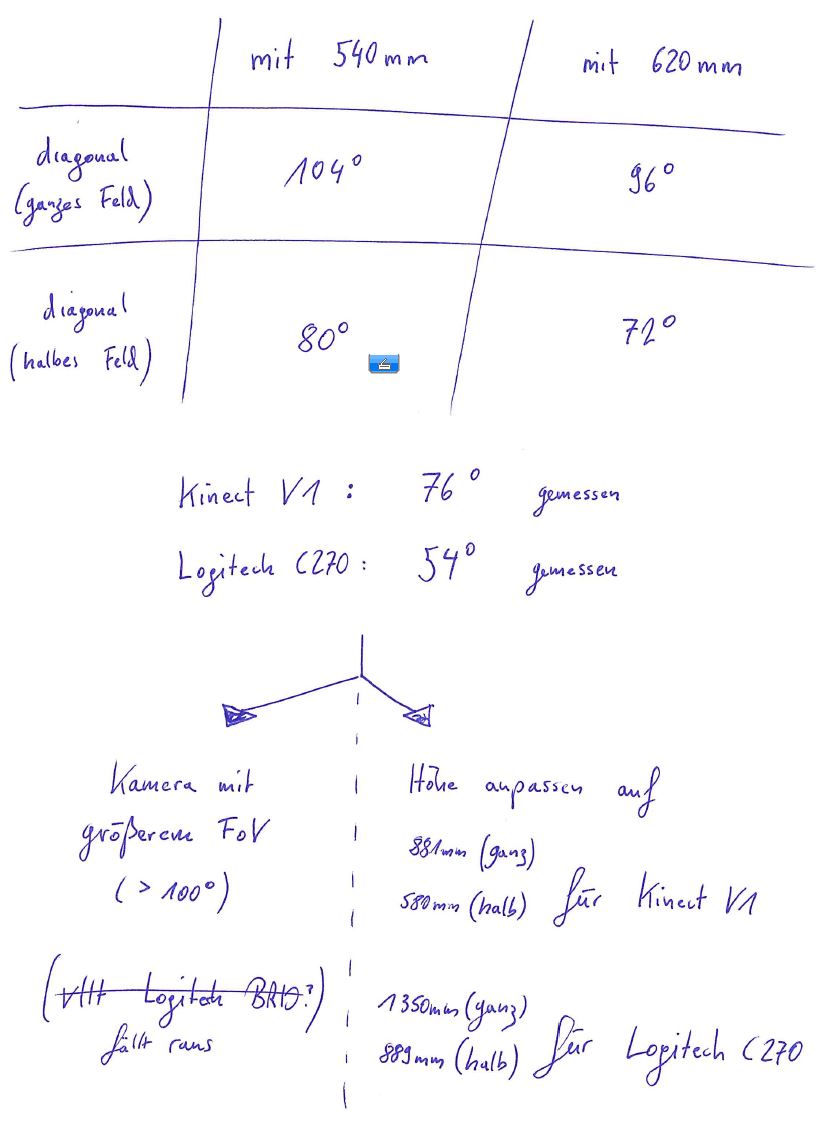 mit 540mm mit 620mm
diagonal
(ganzes Feld) 104° 96°
diagonal
(halbes Feld) 80° 72°
Kinect V1 : 76° gemessen
Logitech C270 : 54° gemessen
Kamera mit
größerem FoV
(> 100°)
(vllt Logitech BRIO?)
fällt raus
Höhe anpassen auf
881mm (ganz)
580mm (halb) für Kinect V1
1350mm (ganz)
889mm (halb) für Logitech C270